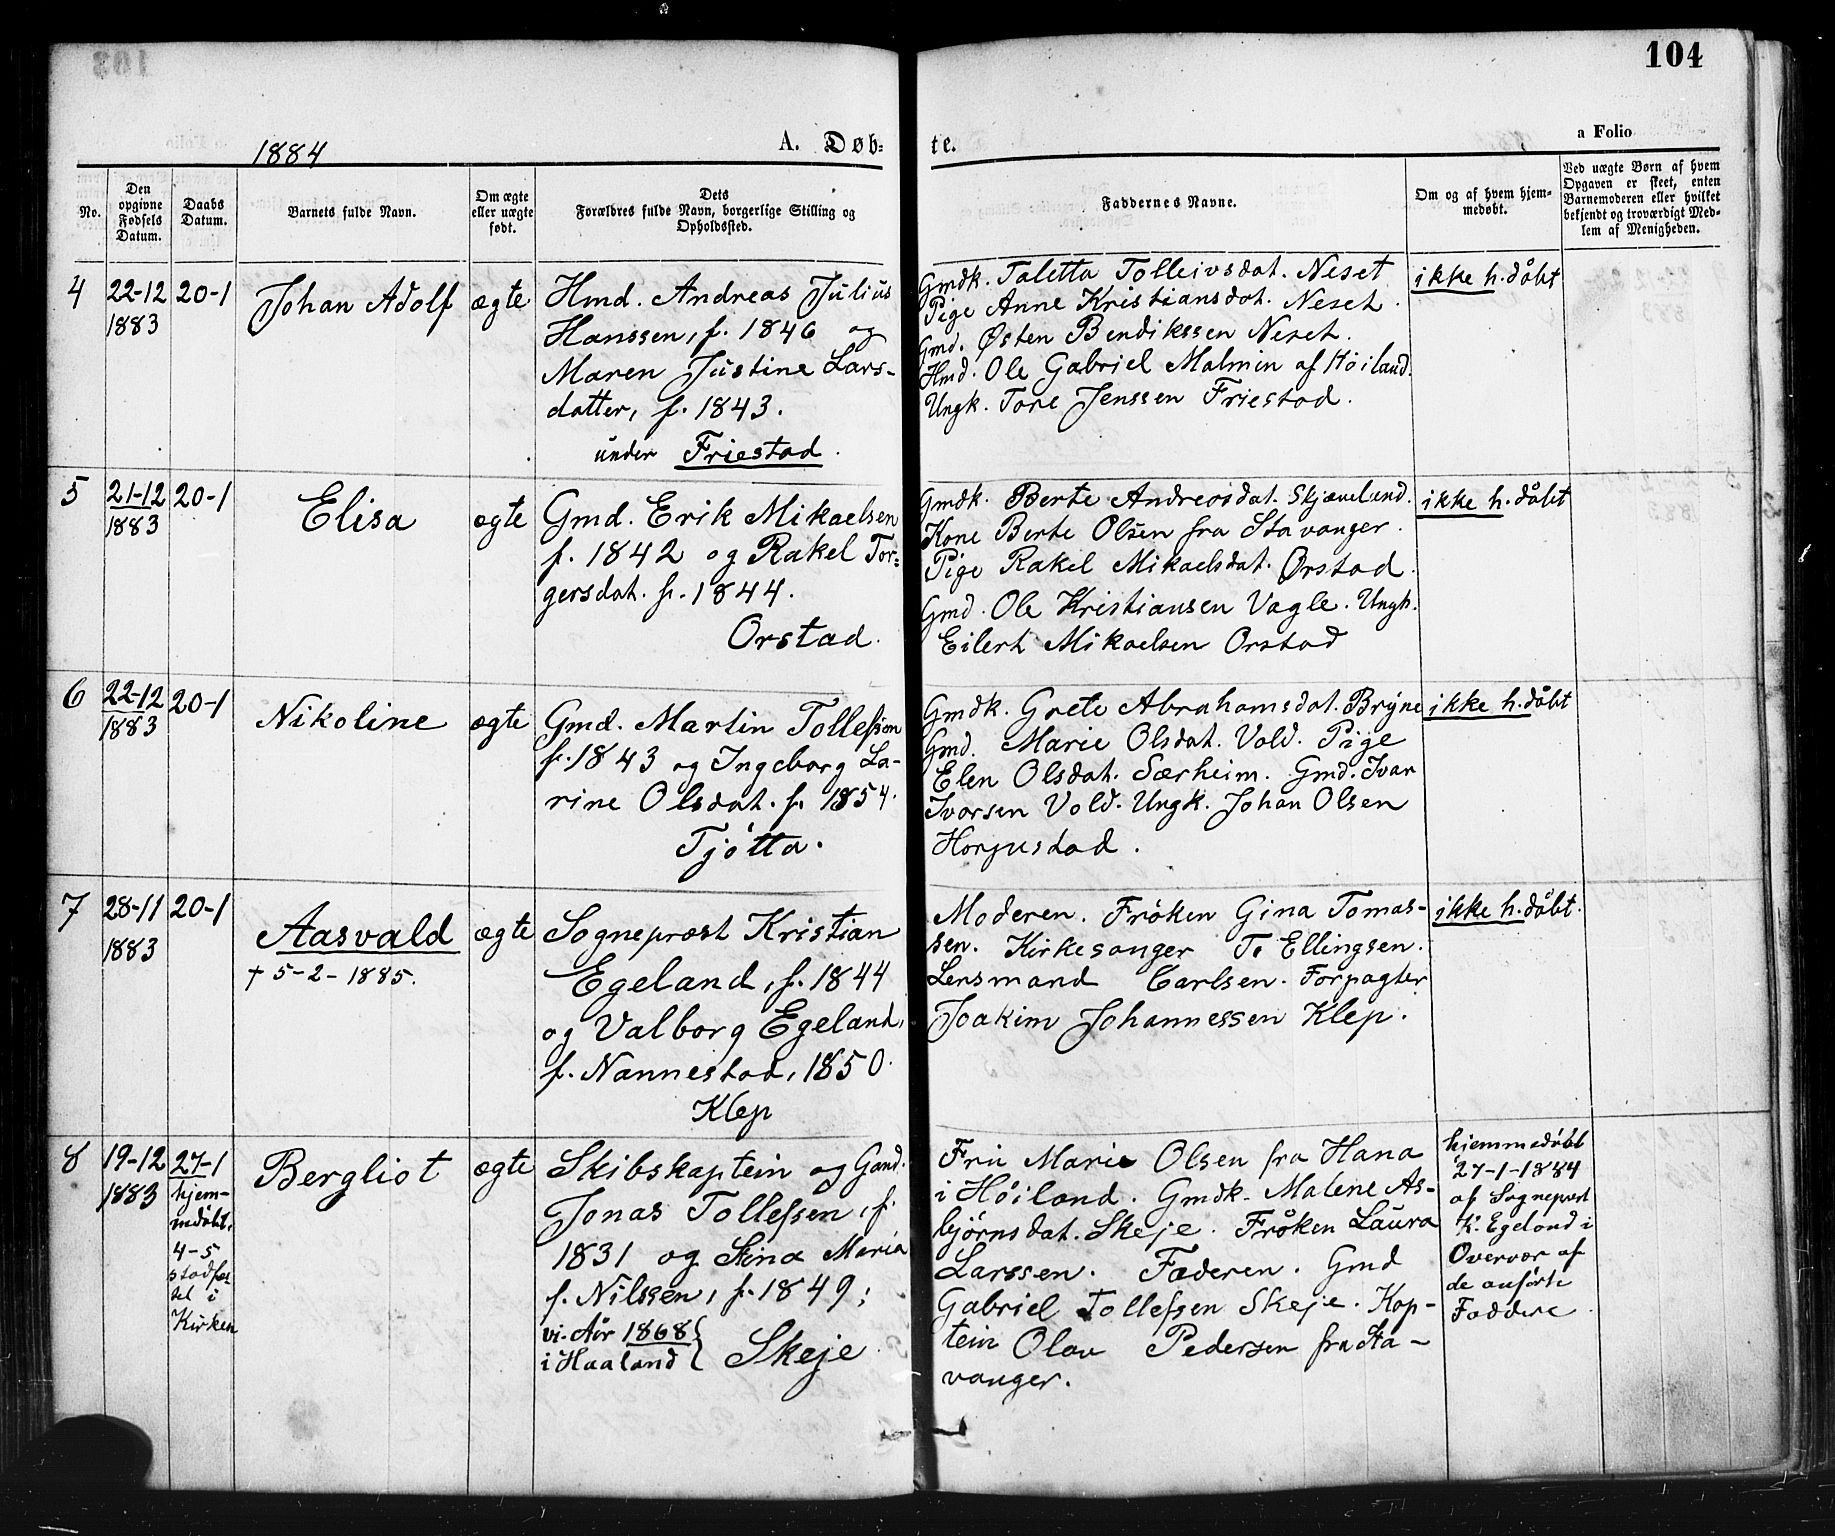 104
1884
A. Døb-
te.
a Folio
No.
Den
opgivne
Fødsels
Datum.
Daabs
Datum.
Barnets fulde Navn.
Om ægte
eller uægte
født.
Dets
Forældres fulde Navn, borgerlige Stilling og
Opholdssted.
Faddernes Navne.
Om og af hvem hjem-
medøbt.
Ved uægte Børn af hvem
Opgaven er skeet, enten
Barnemoderen eller hvilket
bekjendt og troværdigt Med-
lem af Menigheden.
4
22-12
1883
20-1
Johan Adolf
ægte
Hmd. Andreas Julius
Hanssen, f. 1846 og
Maren Justine Lars-
datter, f. 1843.
under Friestad.
Gmdk. Taletta Tolleivsdat. Neset
Pige Anne Kristiansdat. Neset.
Gmd. Østen Bendikssen Neset.
Hmd. Ole Gabriel Malmin af Höiland.
Ungk. Tore Jenssen Friestad.
ikke h. döbt
5
21-12
1883
20-1
Elisa
ægte
Gmd. Erik Mikaelsen
f. 1842 og Rakel Tor-
gersdat. f. 1844.
Orstad.
Gmdk. Berte Andreasdat. Skjæveland.
Kone Berte Olsen fra Stavanger.
Pige Rakel Mikaelsdat. Orstad.
Gmd. Ole Kristiansen Vagle. Ungk.
Eilert Mikaelsen Orstad
ikke h. döbt
6
22-12
1883
20-1
Nikoline
ægte
Gmd. Martin Tollefsen
f. 1843 og Ingeborg La-
rine Olsdat. f. 1854.
Tjötta.
Gmdk. Grete Abrahamsdat. Bryne
Gmd. Marie Olsdat. Vold. Pige
Elen Olsdat. Særheim. Gmd. Ivar
Ivarsen Vold. Ungk. Johan Olsen
Horpustad.
ikke h. döbt
7
28-11
1883
20-1
Aasvald
† 5-2-1885.
ægte
Sogneprest Kristian
Egeland, f. 1844
og Valborg Egeland,
f. Nannestad, 1850.
Klep
Moderen. Fröken Gina Tomas-
sen. Kirkesanger T. Ellingsen.
Lensmand Carlsen. Forpagter
Joakim Johannessen Klep.
ikke h. döbt.
8
19-12
1883
27-1
hjem-
medöbt.
4-5
stadfæ-
tel i
Kirken
Bergliot
ægte
Skibskaptein og Gmd.
Jonas Tollefsen, f.
1831 og Stina Maria
f. Nilssen, f. 1849;
vi. Aar 1868
i Haaland
Skeje
Fru Marie Olsen fra Hana
i Höiland. Gmdk. Malene As-
björnsdat. Skeje. Fröken Laura
Larssen. Faderen. Gmd
Gabriel Tollefsen Skeje. Kap-
tein Olav Pedersen fra Sta-
vanger.
hjemmedöbt
27-1-1884
af Sogneprest
K. Egeland i
Overvær af
de anförte
Faddere